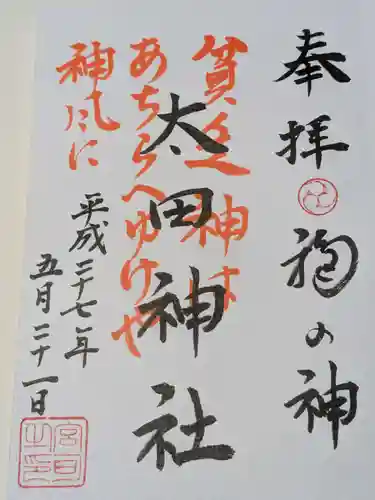 奉拝
福の神
太田神社
貧乏神は
あちらへゆけや
神風に
平成二十七年
五月二十一日
宮司之印